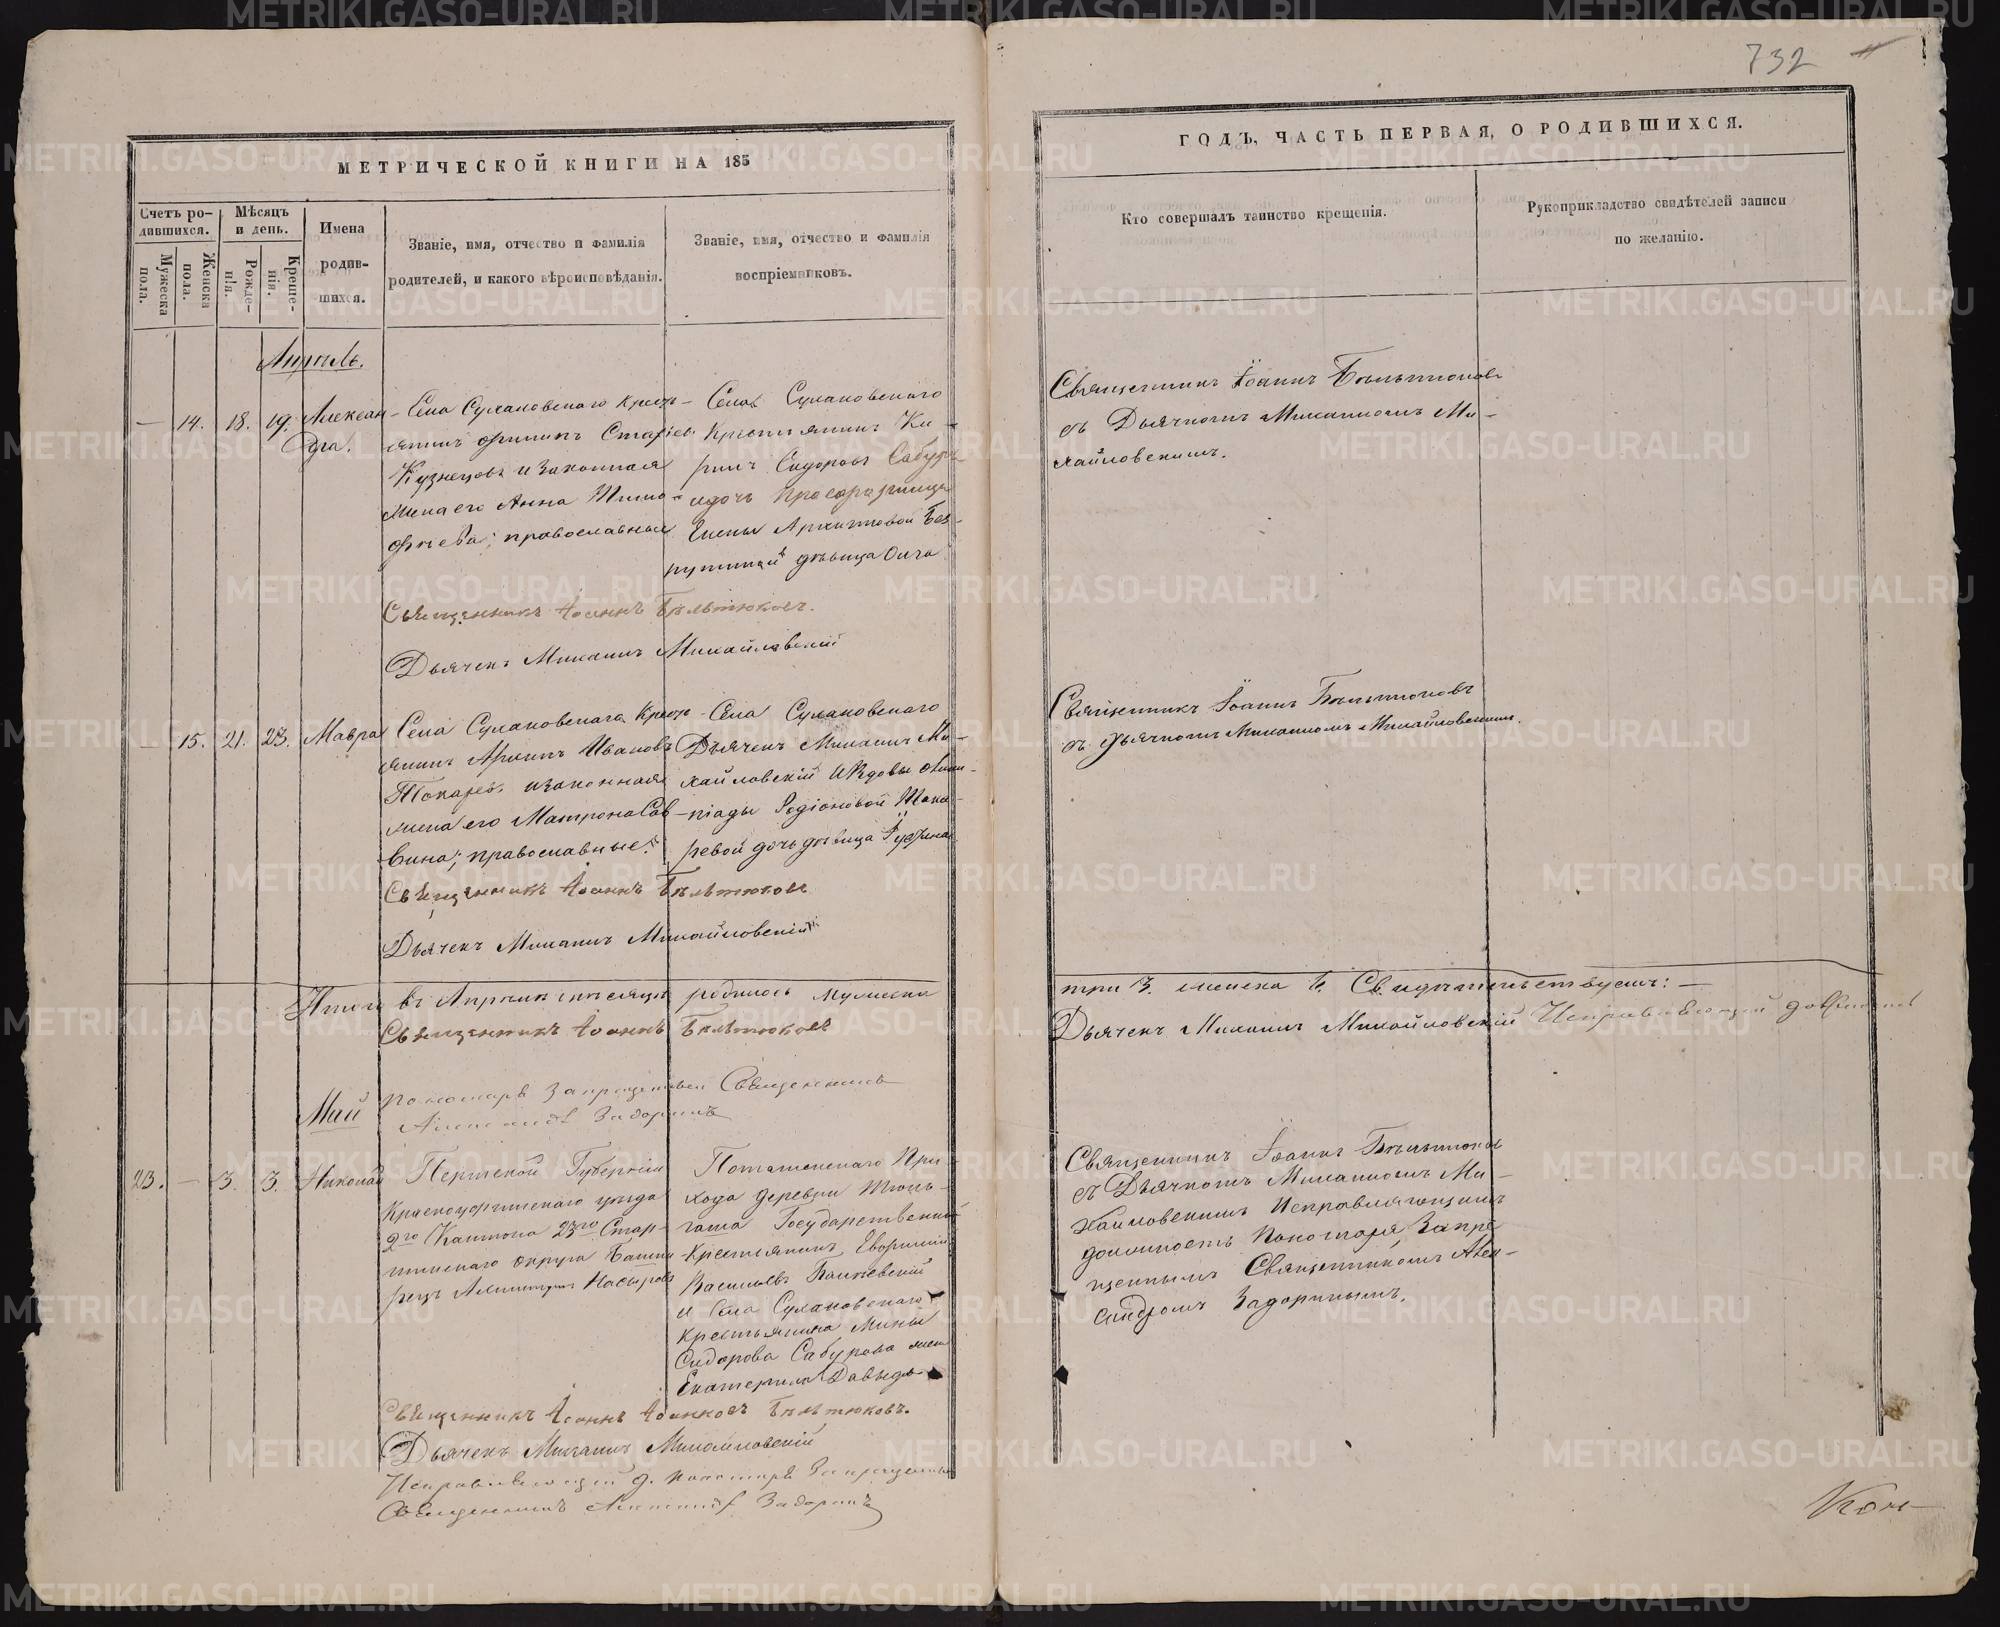 732
МЕТРИЧЕСКОЙ КНИГИ НА 185
ГОДЪ, ЧАСТЬ ПЕРВАЯ, О РОДИВШИХСЯ.
Счетъ ро-
дившихся.
Мужеска
пола.
Женска
пола.
Мѣсяцъ
и день.
Рожде-
нія.
Креще-
нія.
Имена
родив-
шихся.
Званіе, имя, отчество и фамилія
родителей, и какого вѣроисповѣданія.
Званіе, имя, отчество и фамилія
воспріемниковъ.
Кто совершалъ таинство крещенія.
Рукоприкладство свидѣтелей записи
по желанію.
Апрѣль.
— 14. 18. 19. Алексан-
дра.
Села Сулаковскаго Крест-
янинъ
Кузнецовъ и законная
жена его Анна Тимо-
фѣева; православные
Села Сулаковскаго
Крестьянинъ Ки-
рилъ Сидоровъ Сабуро
идочь
Елены Архиповой Без-
дѣвица Ольга
Священникъ Іоаннъ Бѣльтюковъ
съ Дьячкомъ Михаиломъ Ми-
хайловскимъ.
Священникъ Іоаннъ Бѣльтюковъ.
Дьячекъ Михаилъ Михайловскій
— 15. 21. 23. Мавра
Села Сулаковскаго Крест-
янинъ Архипъ Ивановъ
Токаревъ изаконная
жена его Матрона Сав-
вина; православные.
Села Сулаковскаго
Дьячекъ Михаилъ Ми-
хайловскій Ивдовы Олим-
піады Родіоновой Тока-
ревой дочь дѣвица Руфина
Священникъ Іоаннъ Бѣльтюковъ
съ Дьячкомъ Михаиломъ Михайловскимъ.
Священникъ Іоаннъ Бѣльтюковъ
Дьячекъ Михаилъ Михайловскій
Итого въ Апрѣлѣ мѣсяцѣ родилось мужеска
три 3. женска Свидѣтельствуемъ: —
Священникъ Іоаннъ Бѣльтюковъ
Дьячекъ Михаилъ Михайловскій Исправляющій
Пономаря Запрещенный Священникъ
Александръ Задоринъ
Май
23. — 3. 3. Николай
Пермской Губерніи
Красноуфимскаго уѣзда
2го Кантона 23го
округа Башки-
рецъ
При
хода деревни
Государственный
Крестьянинъ
Васильевъ
и Села Сулаковскаго
Крестьянина Мины
Сидорова Сабурова жена
Екатерина Давыдо
Священникъ Іоаннъ Бѣльтюковъ
съ Дьячкомъ Михаиломъ Ми-
хайловскимъ Исправляющимъ
должность Пономаря, Запре
щеннымъ Священникомъ Алек-
сандромъ Задоринымъ.
Священникъ Іоаннъ Іоанновъ Бѣльтюковъ.
Дьячекъ Михаилъ Михайловскій
Исправляющій д. пономаря Запрещенный
Священникъ Александръ Задоринъ
METRIKI.GASO-URAL.RU